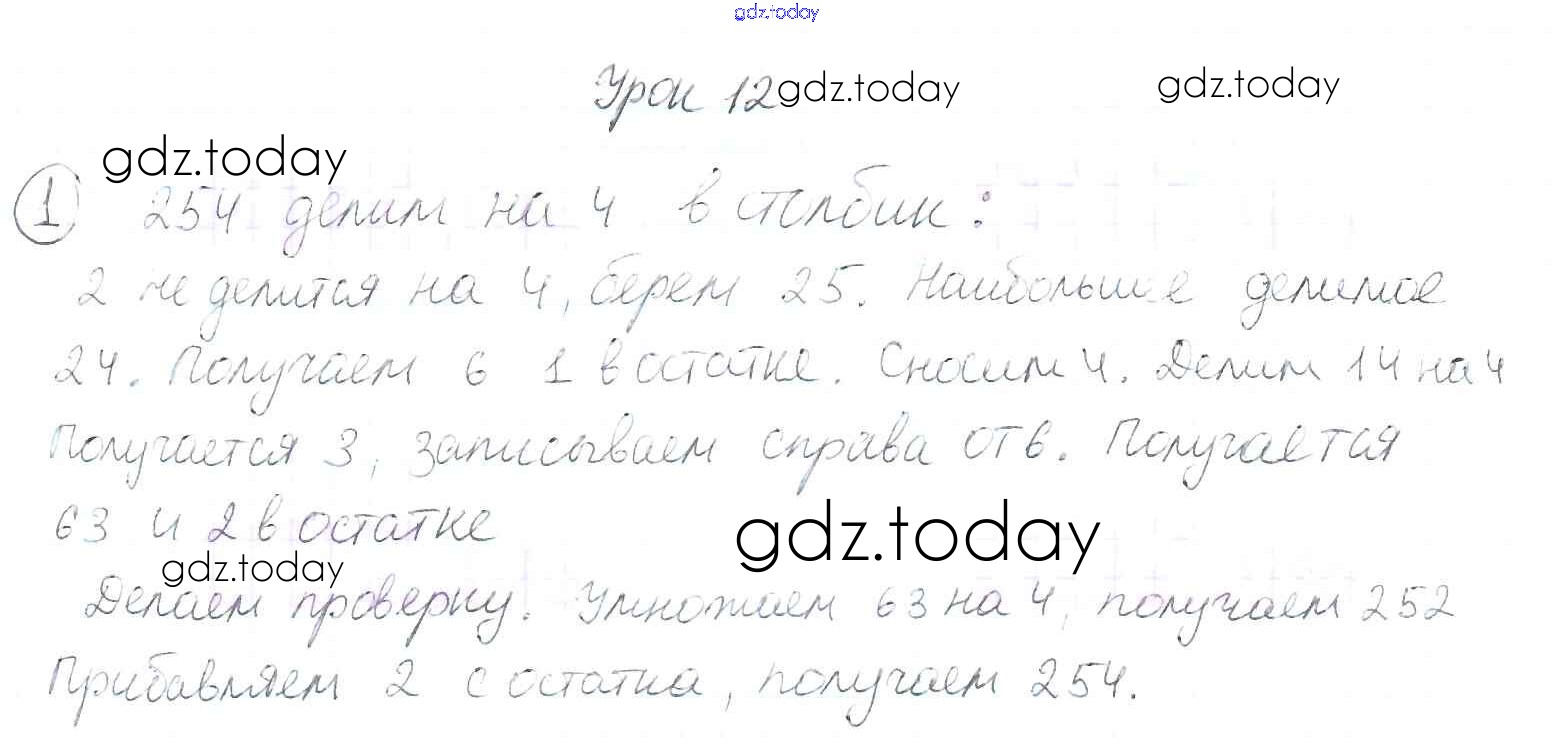 gdz.today
Урок 12 gdz.today gdz.today
gdz.today
1 254 делим на 4 в столбик:
2 не делится на 4, берем 25. Наибольшее делимое
24. Получаем 6 1 в остатке. Сносим 4. Делим 14 на 4
Получается 3, записываем справа от 6. Получается
63 и 2 в остатке
gdz.today
gdz.today
Делаем проверку. Умножаем 63 на 4, получаем 252
Прибавляем 2 с остатка, получаем 254.